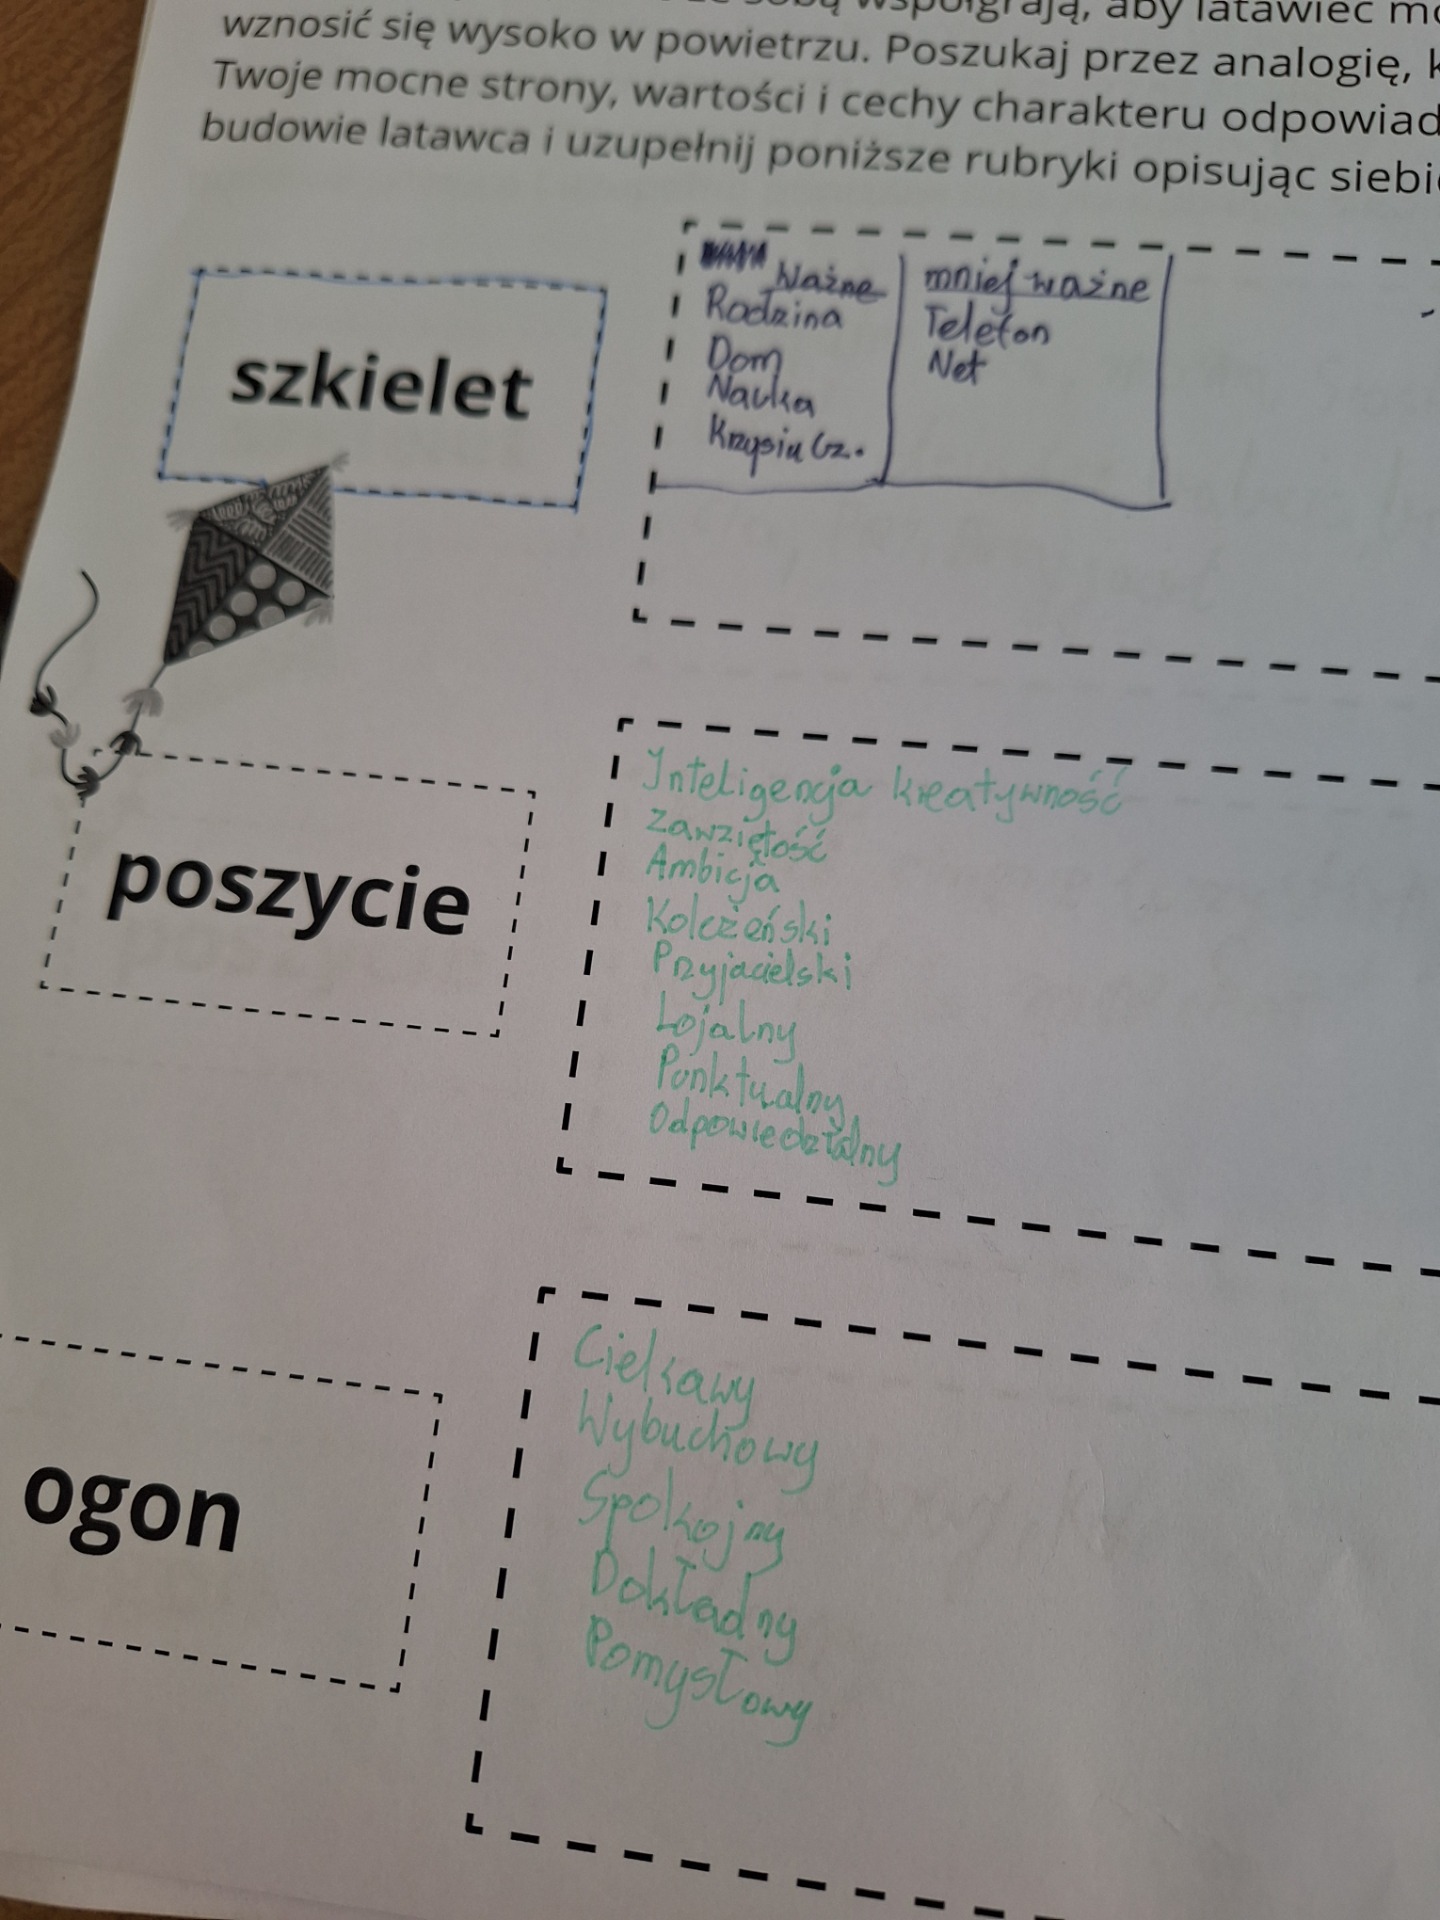 sobą współgrają, aby latawiec
wznosić się wysoko w powietrzu. Poszukaj przez analogię,
Twoje mocne strony, wartości i cechy charakteru odpowiad
budowie latawca i uzupełnij poniższe rubryki opisując siebi
szkielet
Ważne
Rodzina
Dom
Nauka
Krzysiu Cz.
mniej ważne
Telefon
Net
poszycie
Inteligencja kreatywność
zawziętość
Ambicja
Koleżeński
Przyjacielski
Lojalny
Punktualny
Odpowiedzialny
ogon
Ciekawy
Wybuchowy
Spokojny
Dokładny
Pomysłowy